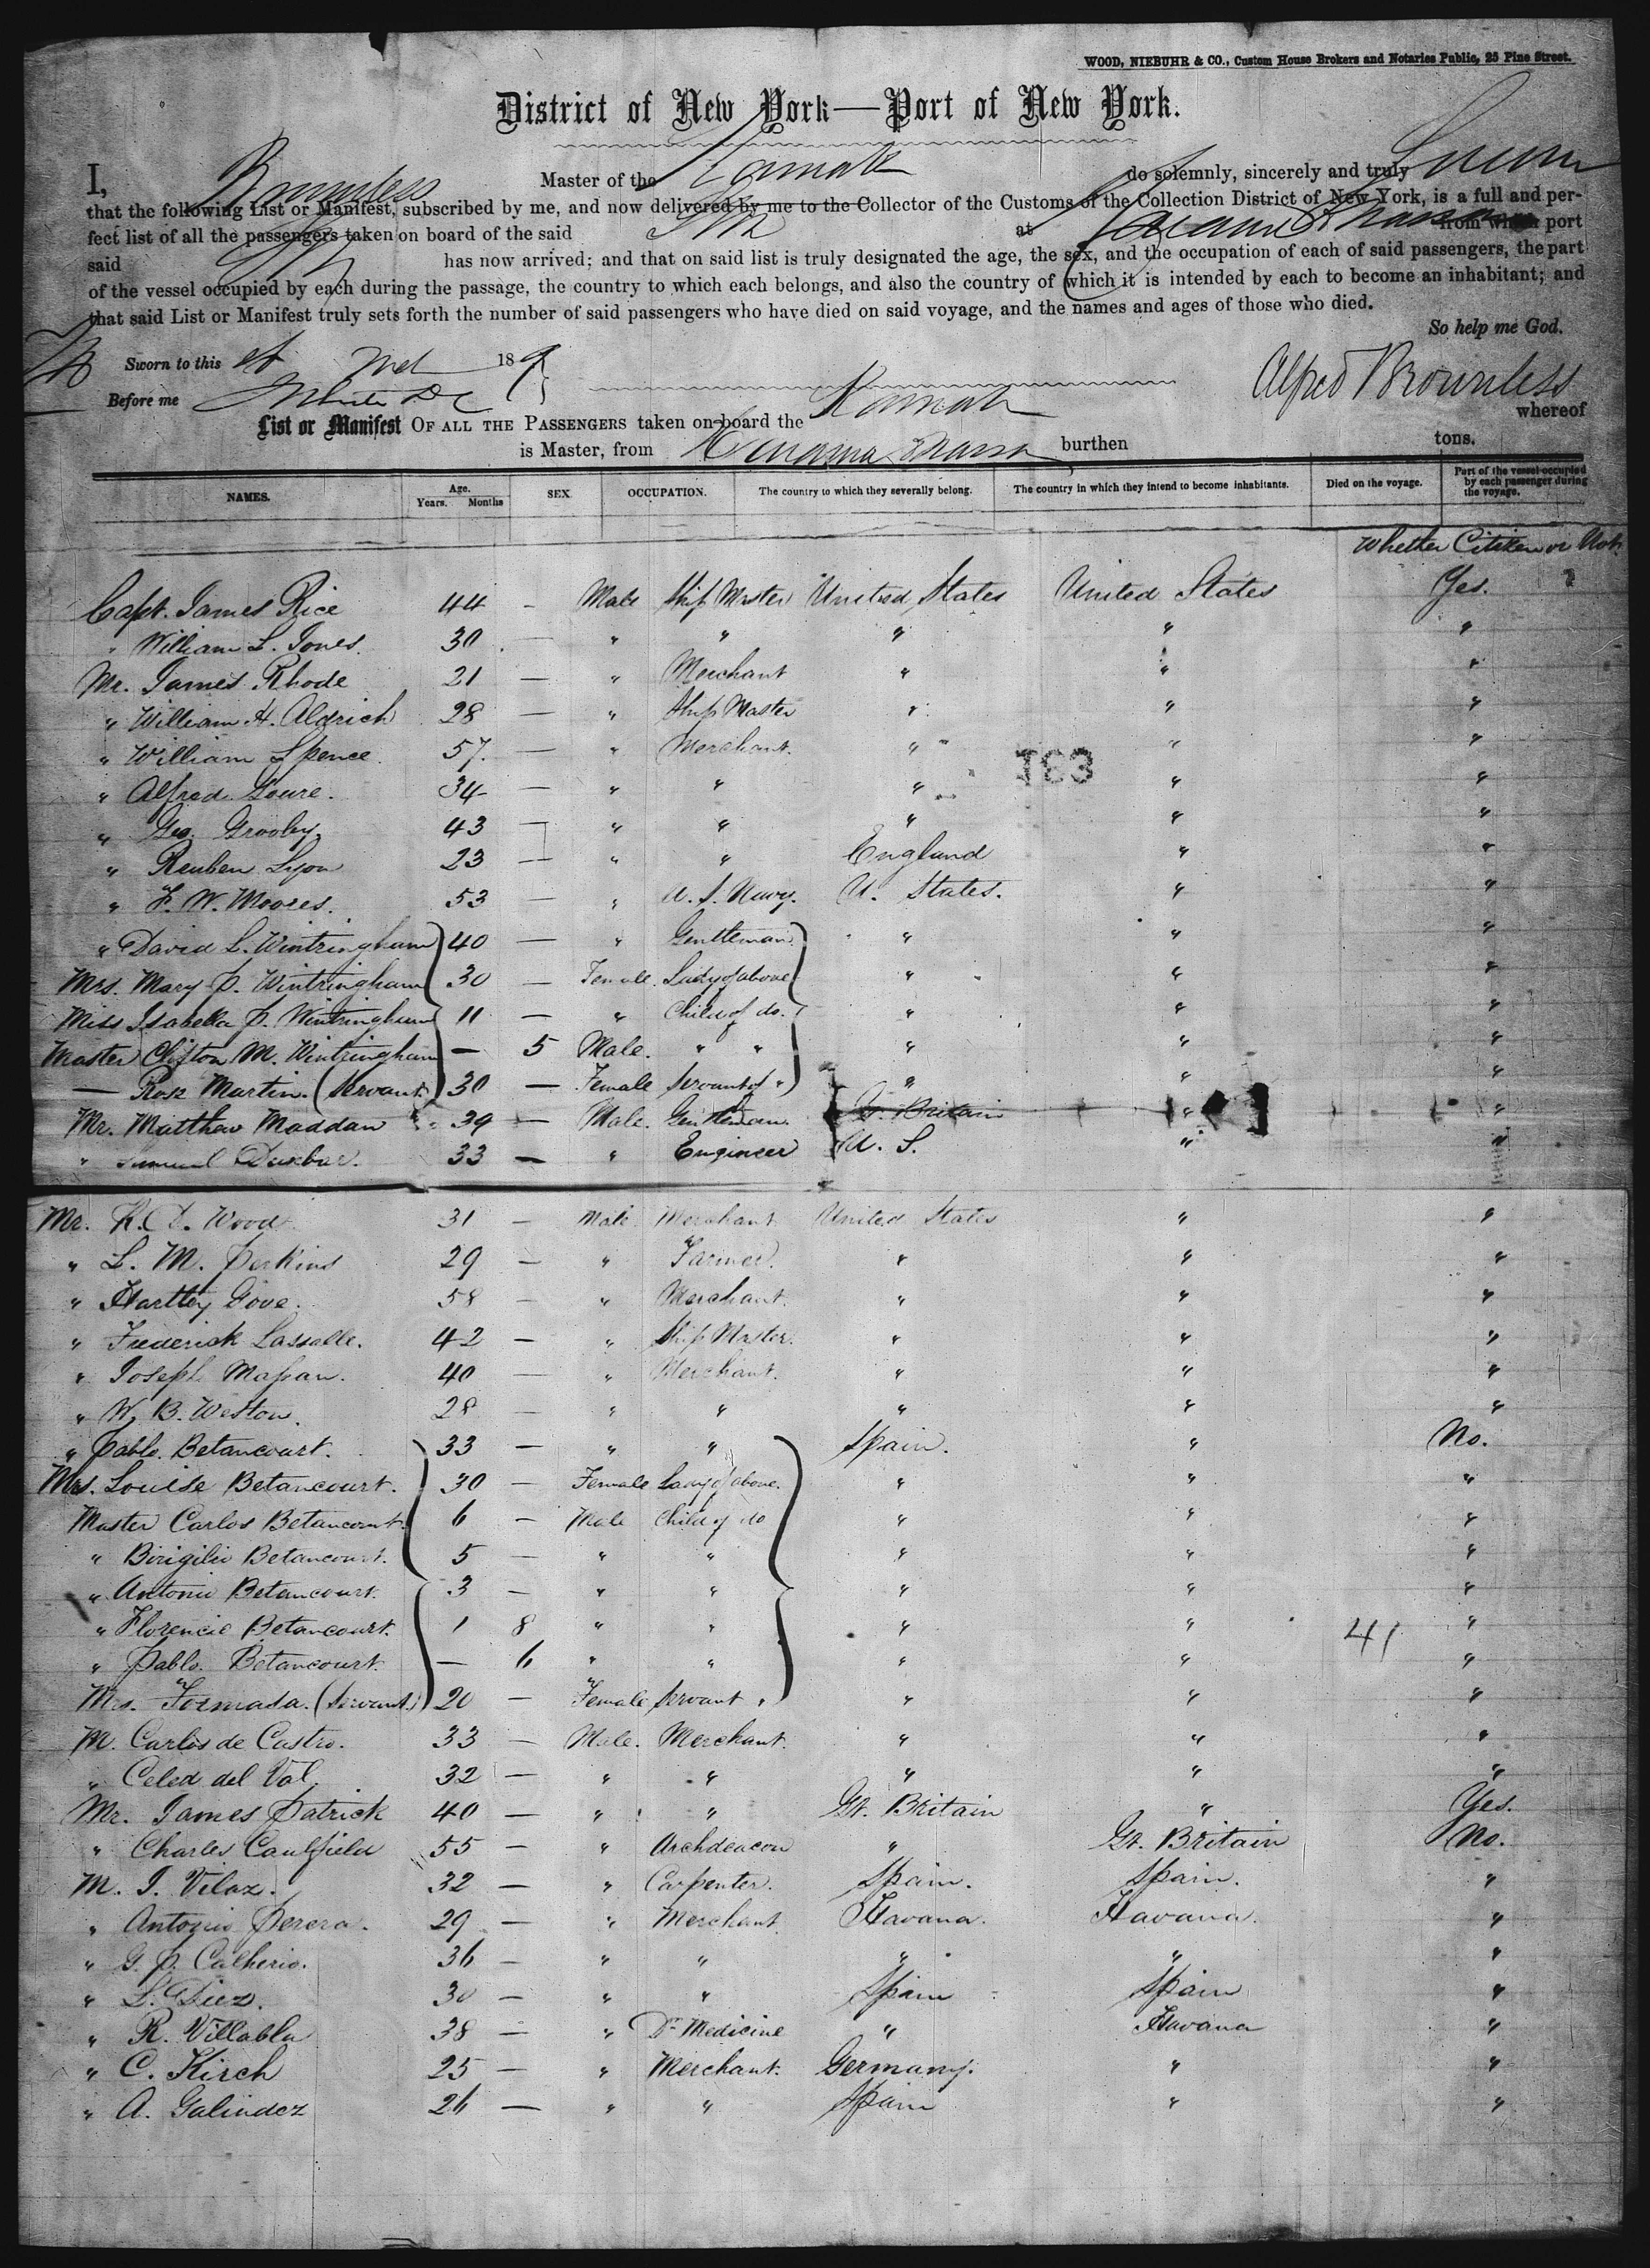 WOOD, NIEBUHR & CO., Custom House Brokers and Notaries Public, 25 Pine Street.
District of New York—Port of New York.
I, Brownless Master of the Karnak do solemnly, sincerely and truly Swear
that the following List or Manifest, subscribed by me, and now delivered by me to the Collector of the Customs of the Collection District of New York, is a full and per-
fect list of all the passengers taken on board of the said at from which port
said has now arrived; and that on said list is truly designated the age, the sex, and the occupation of each of said passengers, the part
of the vessel occupied by each during the passage, the country to which each belongs, and also the country of which it is intended by each to become an inhabitant; and
that said List or Manifest truly sets forth the number of said passengers who have died on said voyage, and the names and ages of those who died.
So help me God.
Sworn to this 18
Before me Alfred Brownless
List or Manifest OF ALL THE PASSENGERS taken on board the Karnak whereof
is Master, from burthen tons.
NAMES. Age. Years. Months SEX. OCCUPATION. The country to which they severally belong. The country in which they intend to become inhabitants. Died on the voyage. Part of the vessel occupied by each passenger during the voyage.
Whether Citizen or Not
Capt. James Rice 44 - Male Ship Master United States United States Yes.
" William L. Jones. 30 — " " " " "
Mr. James Rhode 21 — " Merchant " " "
" William H. Aldrich 28 — " Ship Master " " "
" William Spence. 57. — " Merchant. " " "
163
" Alfred 34 — " " " " "
" Geo. Grooby 43 — " " " " "
" Reuben Lyon 23 — " " England " "
" F. W. Moores. 53 — " U. S. Navy. U. States. " "
" David L. Wintringham 40 — " Gentleman " " "
Mrs. Mary P. Wintringham 30 — Female. Lady of above " " "
Miss Isabella P. Wintringham 11 — " Child of do. " " "
Master Clifton M. Wintringham — 5 Male. " " " " "
— Rose Martin. (Servant.) 30 — Female Servant of " " " "
Mr. Matthew Maddan 39 — Male. Gentleman G. Britain " "
" Samuel 33 — " Engineer U. S. " "
Mr. K. D. Wood. 31 — Male Merchant United States " "
" L. M. Perkins 29 — " Farmer. " " "
" Hartley Gove. 58 — " Merchant. " " "
" Frederick Lassalle. 42 — " Ship Master. " " "
" Joseph 40 — " Merchant. " " "
" W. B. Weston. 28 — " " " " "
" Pablo. Betancourt. 33 — " " Spain. " No.
Mrs. Louise Betancourt. 30 — Female Lady of above. " " "
Master Carlos Betancourt. 6 — Male Child of do " " "
" Birigilio Betancourt. 5 — " " " " "
" Antonio Betancourt. 3 — " " " " "
" Florencie Betancourt. 1 8 " " " " "
41
" Pablo. Betancourt. — 6 " " " " "
Mrs. Formada. (Servant.) 20 — Female Servant " " " "
M. Carlos de Castro. 33 — Male. Merchant. " " "
" Celed del Val. 32 — " " " " "
Mr. James Patrick 40 — " " Gt. Britain " Yes.
" Charles Caulfield 55 — " Archdeacon " Gt. Britain No.
M. J. Vilaz. 32 — " Carpenter. Spain. Spain. "
" Antonio Perera. 29 — " Merchant Havana. Havana. "
" G. P. Calherio. 36 — " " " " "
" L. Diez. 30 — " " Spain Spain "
" R. Villabla 38 — " Dr. Medicine " Havana "
" C. Kirch 25 — " Merchant. Germany. " "
" A. Galindez 26 — " " Spain " "